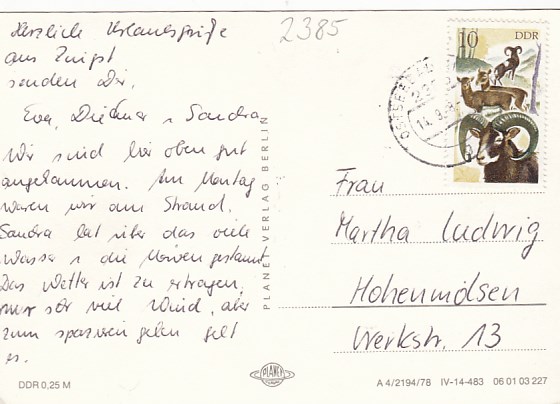 Herzliche Urlaubsgrüße
aus Zingst
senden Dir,
Eva, Dietmar u Sandra
Wir sind hier oben gut
angekommen. Am Montag
waren wir am Strand.
Sandra hat über das viele
Wasser u die Möwen gestaunt.
Das Wetter ist zu ertragen,
nur sehr viel Wind, aber
zum spazieren gehen geht
es.
DDR 0,25 M
PLANET-VERLAG BERLIN
PLANET
2385
10 DDR
OSTSEEBAD
Frau
Martha Ludwig
Hohenmölsen
Werkstr. 13
A 4/2194/78 IV-14-483 06 01 03 227